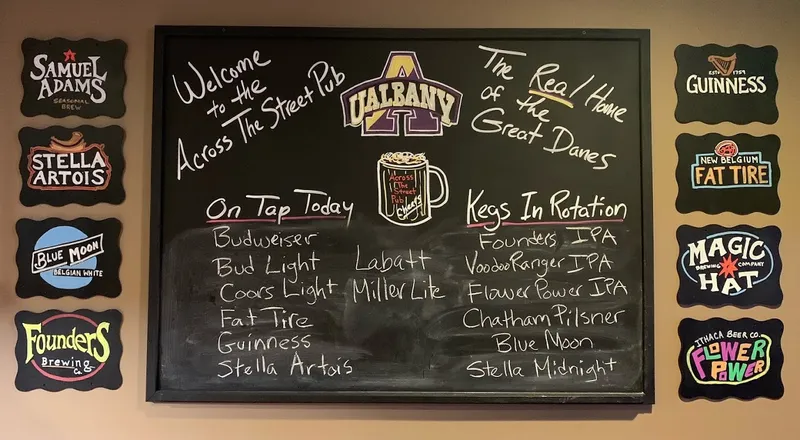 SAMUEL
ADAMS
SEASONAL
BREW
STELLA
ARTOIS
BLUE MOON
BELGIAN WHITE
Founders
Brewing
Co.
Welcome
to the
Across The Street Pub
UALBANY
A
The Real Home
of the
Great Danes
Across
The
Street
Pub
Cheers
On Tap Today
Budweiser
Bud Light
Coors Light
Fat Tire
Guinness
Stella Artois
Labatt
Miller Lite
Kegs In Rotation
Founders IPA
Voodoo Ranger IPA
Flower Power IPA
Chatham Pilsner
Blue Moon
Stella Midnight
ESTD 1759
GUINNESS
NEW BELGIUM
FAT TIRE
MAGIC
BREWING COMPANY
HAT
ITHACA BEER CO.
FLOWER
POWER